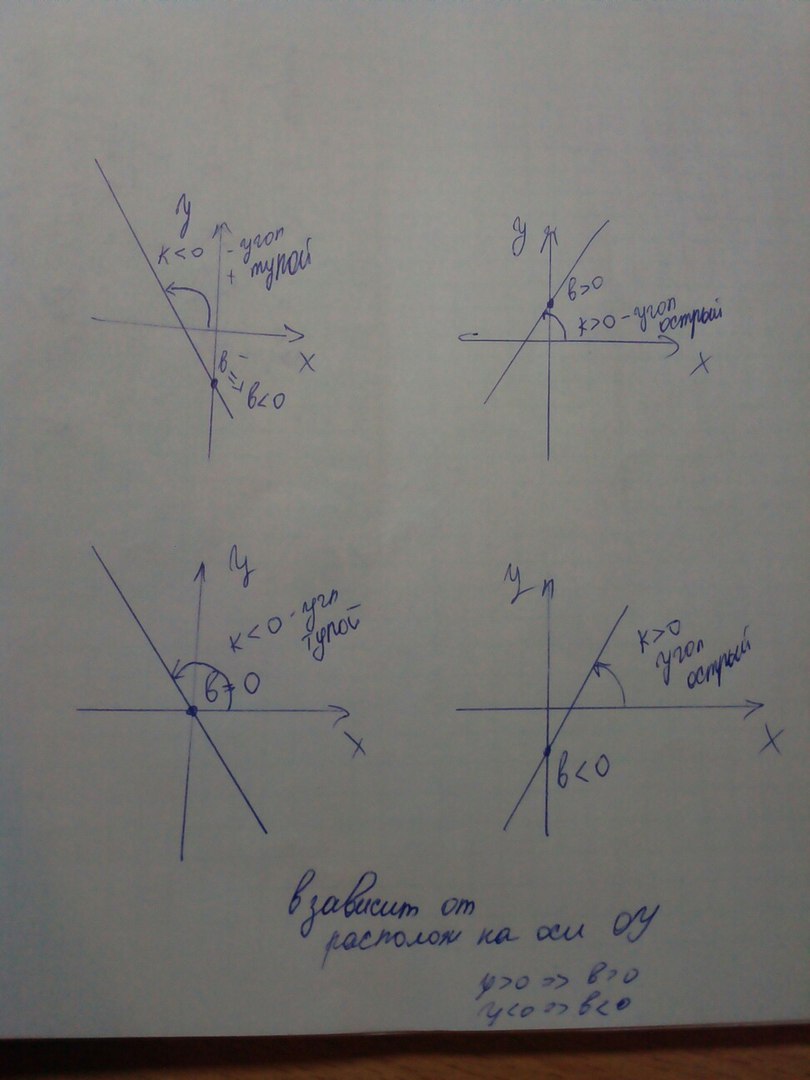 y
k<0 - угол
+ тупой
x
в -
=+ в<0
y
в>0
k>0 - угол
острый
x
y
k<0 - угл
тупой
в=0
x
y
k>0
угол
острый
x
в<0
в зависит от
располож на оси OY
y>0 => в>0
y<0 => в<0